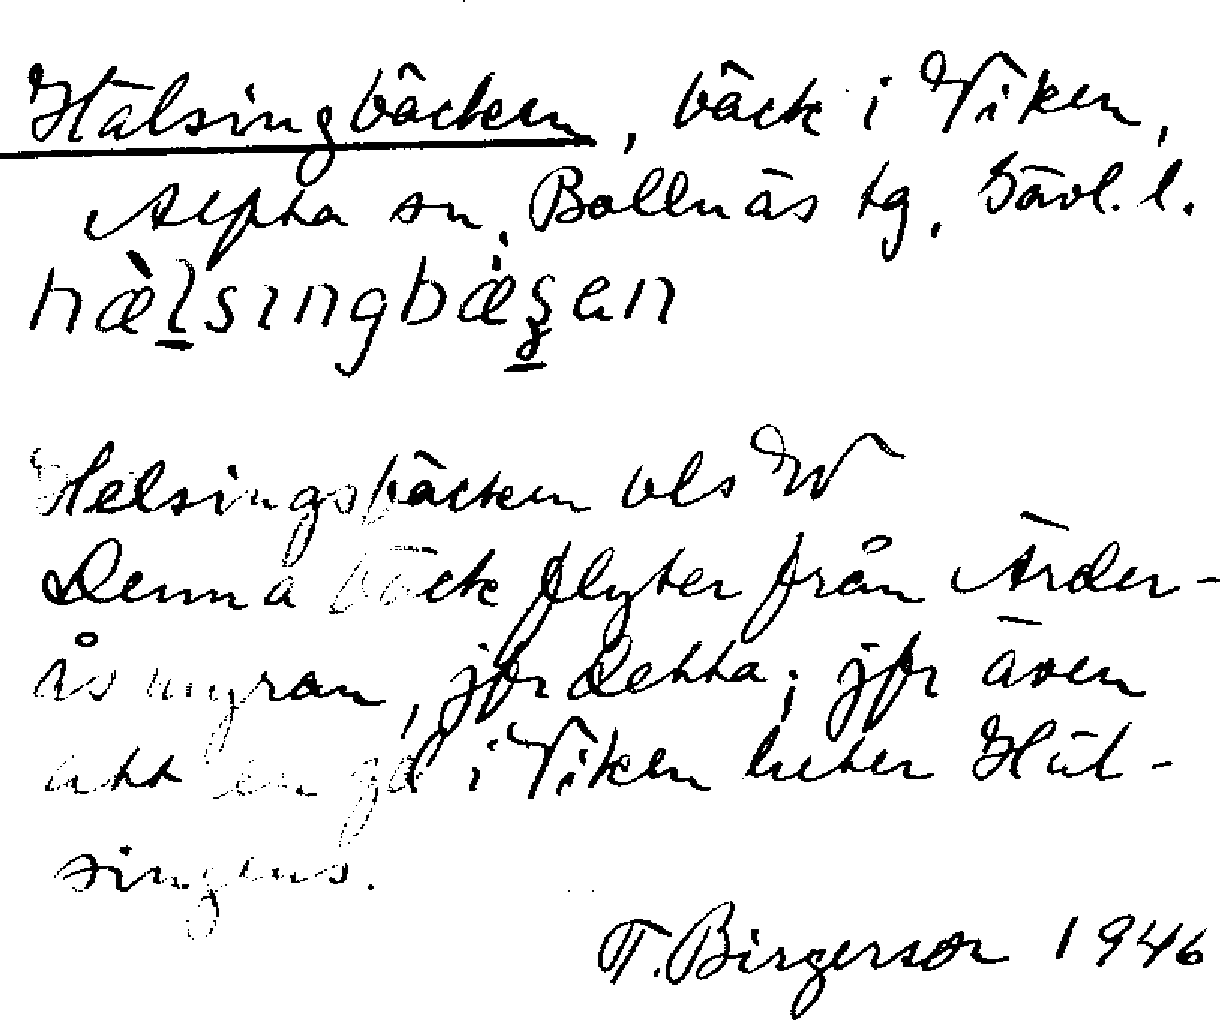 Hälsingbäcken, bäck i Viken,
Alfta sn, Bollnäs tg, Gävl. l.
hæ̀lsıngbæ̀gen
Helsingsbäcken bls W
Denna bäck flyter från Ärder-
åsmyran, jfr detta; jfr även
att en gd i Viken heter Häl-
singens.
T. Birgerson 1946